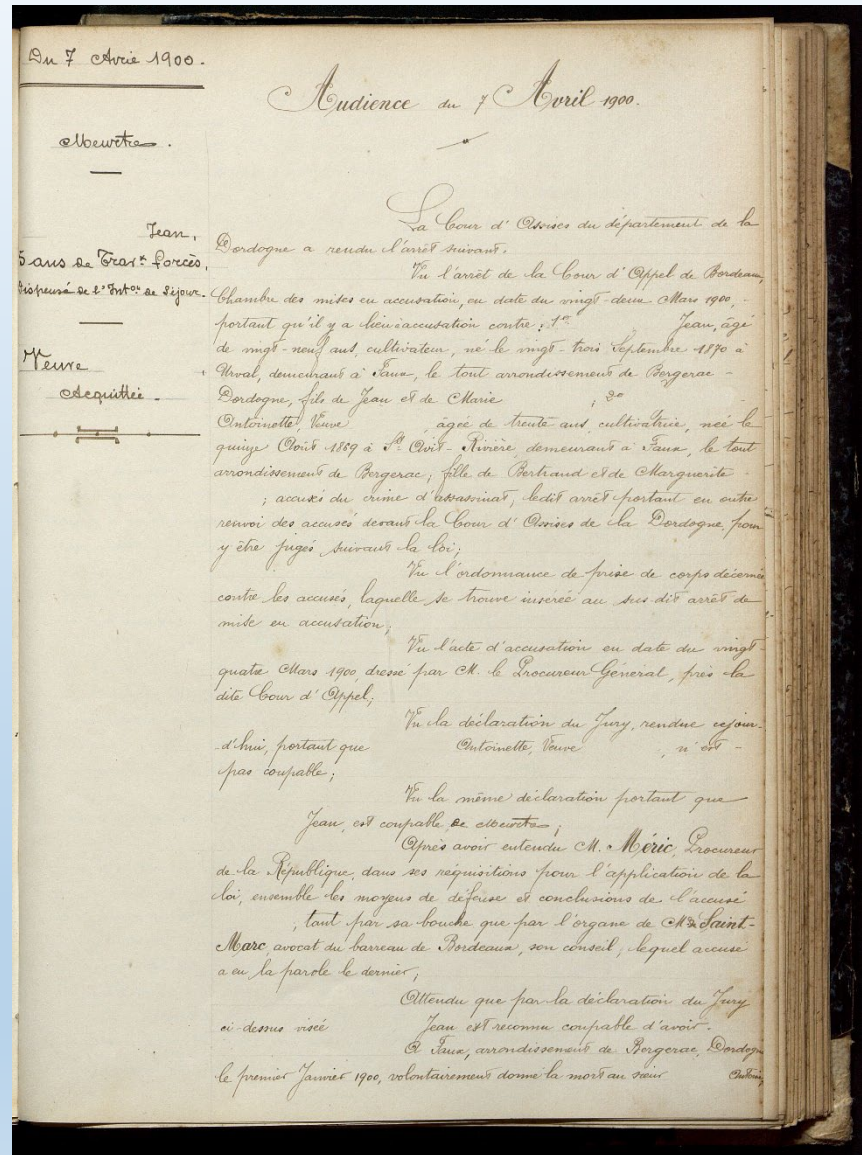 Du 7 Avril 1900.
Meurtre.
Jean,
5 ans de Travx forcés,
Dispensé de l'Inton de Séjour.
Veuve
Acquittée.
Audience du 7 Avril 1900.
La Cour d'Assises du département de la
Dordogne a rendu l'arrêt suivant.
Vu l'arrêt de la Cour d'Appel de Bordeaux,
Chambre des mises en accusation, en date du vingt-deux Mars 1900,
portant qu'il y a lieu à accusation contre : 1o Jean, âgé
de vingt-neuf ans, cultivateur, né le vingt-trois Septembre 1870 à
Urval, demeurant à Faux, le tout arrondissement de Bergerac -
Dordogne, fils de Jean et de Marie ; 2o
Antoinette, Veuve , âgée de trente ans, cultivatrice, née le
quinze Août 1869 à St Avit-Rivière, demeurant à Faux, le tout
arrondissement de Bergerac ; fille de Bertrand et de Marguerite -
; accusés du crime d'assassinat, ledit arrêt portant en outre
renvoi des accusés devant la Cour d'Assises de la Dordogne, pour
y être jugés suivant la loi ;
Vu l'ordonnance de prise de corps décernée
contre les accusés, laquelle se trouve insérée au sus-dit arrêt de
mise en accusation ;
Vu l'acte d'accusation en date du vingt-
quatre Mars 1900, dressé par M. le Procureur Général, près la
dite Cour d'Appel ;
Vu la déclaration du Jury, rendue cejour-
d'hui, portant que Antoinette, Veuve , n'est -
pas coupable ;
Vu la même déclaration portant que
Jean, est coupable de meurtre ;
Après avoir entendu M. Méric, Procureur
de la République, dans ses réquisitions pour l'application de la
loi, ensemble les moyens de défense et conclusions de l'accusé
, tant par sa bouche que par l'organe de Me Saint-
Marc, avocat du barreau de Bordeaux, son conseil, lequel accusé
a eu la parole le dernier ;
Attendu que par la déclaration du Jury
ci-dessus visée Jean est reconnu coupable d'avoir -
A Faux, arrondissement de Bergerac, Dordogne
le premier Janvier 1900, volontairement donné la mort au sieur